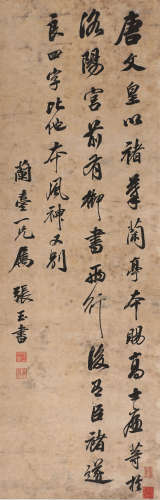 唐文皇以褚摹蘭亭本賜高士廉等於
洛陽宮前有御書兩行後有臣褚遂
良四字比他本風神又別
蘭臺一兄屬 張玉書